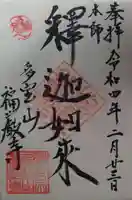 奉拝 令和四年二月廿三日
本師
釋迦如来
多宝山
福嚴寺